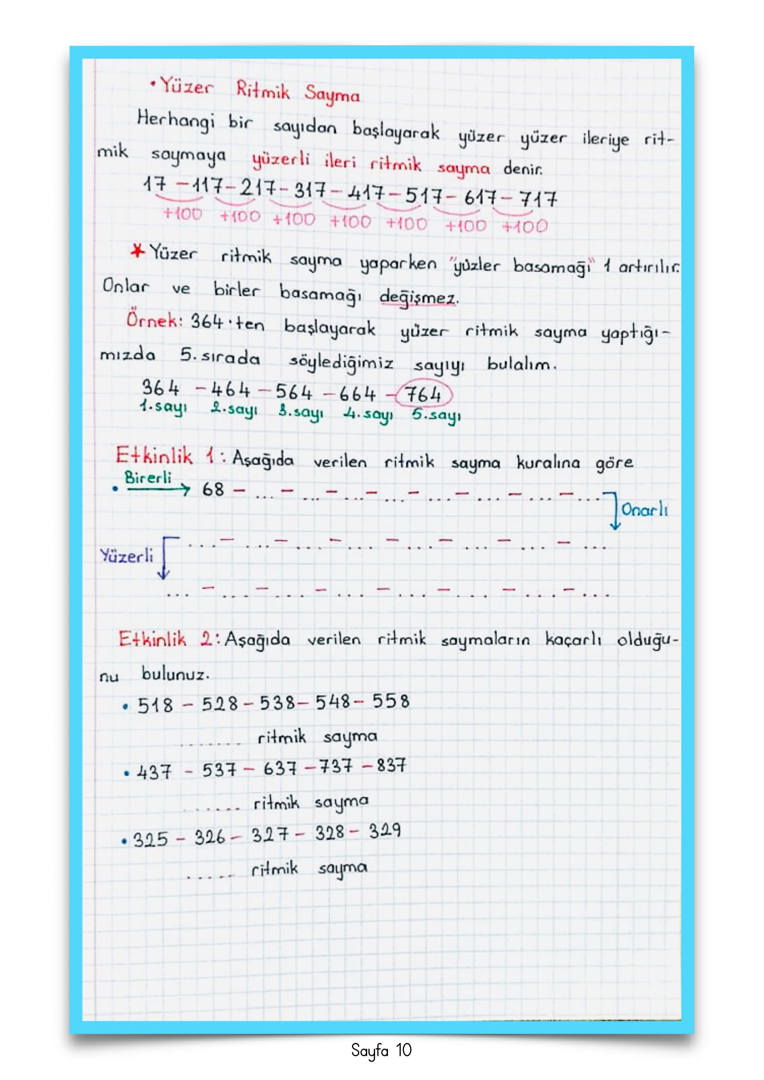 • Yüzer Ritmik Sayma
Herhangi bir sayıdan başlayarak yüzer yüzer ileriye rit-
mik saymaya yüzerli ileri ritmik sayma denir.
17 – 117 – 217 – 317 – 417 – 517 – 617 – 717
+100 +100 +100 +100 +100 +100 +100
* Yüzer ritmik sayma yaparken "yüzler basamağı" 1 artırılır.
Onlar ve birler basamağı değişmez.
Örnek: 364'ten başlayarak yüzer ritmik sayma yaptığı-
mızda 5. sırada söylediğimiz sayıyı bulalım.
364 – 464 – 564 – 664 – 764
1.sayı 2.sayı 3.sayı 4.sayı 5.sayı
Etkinlik 1: Aşağıda verilen ritmik sayma kuralına göre
• Birerli 68 – ... – ... – ... – ... – ... – ... – ...
Onarlı
... – ... – ... – ... – ... – ... – ... – ...
Yüzerli
... – ... – ... – ... – ... – ... – ... – ...
Etkinlik 2: Aşağıda verilen ritmik saymaların kaçarlı olduğu-
nu bulunuz.
• 518 – 528 – 538 – 548 – 558
........ ritmik sayma
• 437 – 537 – 637 – 737 – 837
...... ritmik sayma
• 325 – 326 – 327 – 328 – 329
..... ritmik sayma
Sayfa 10